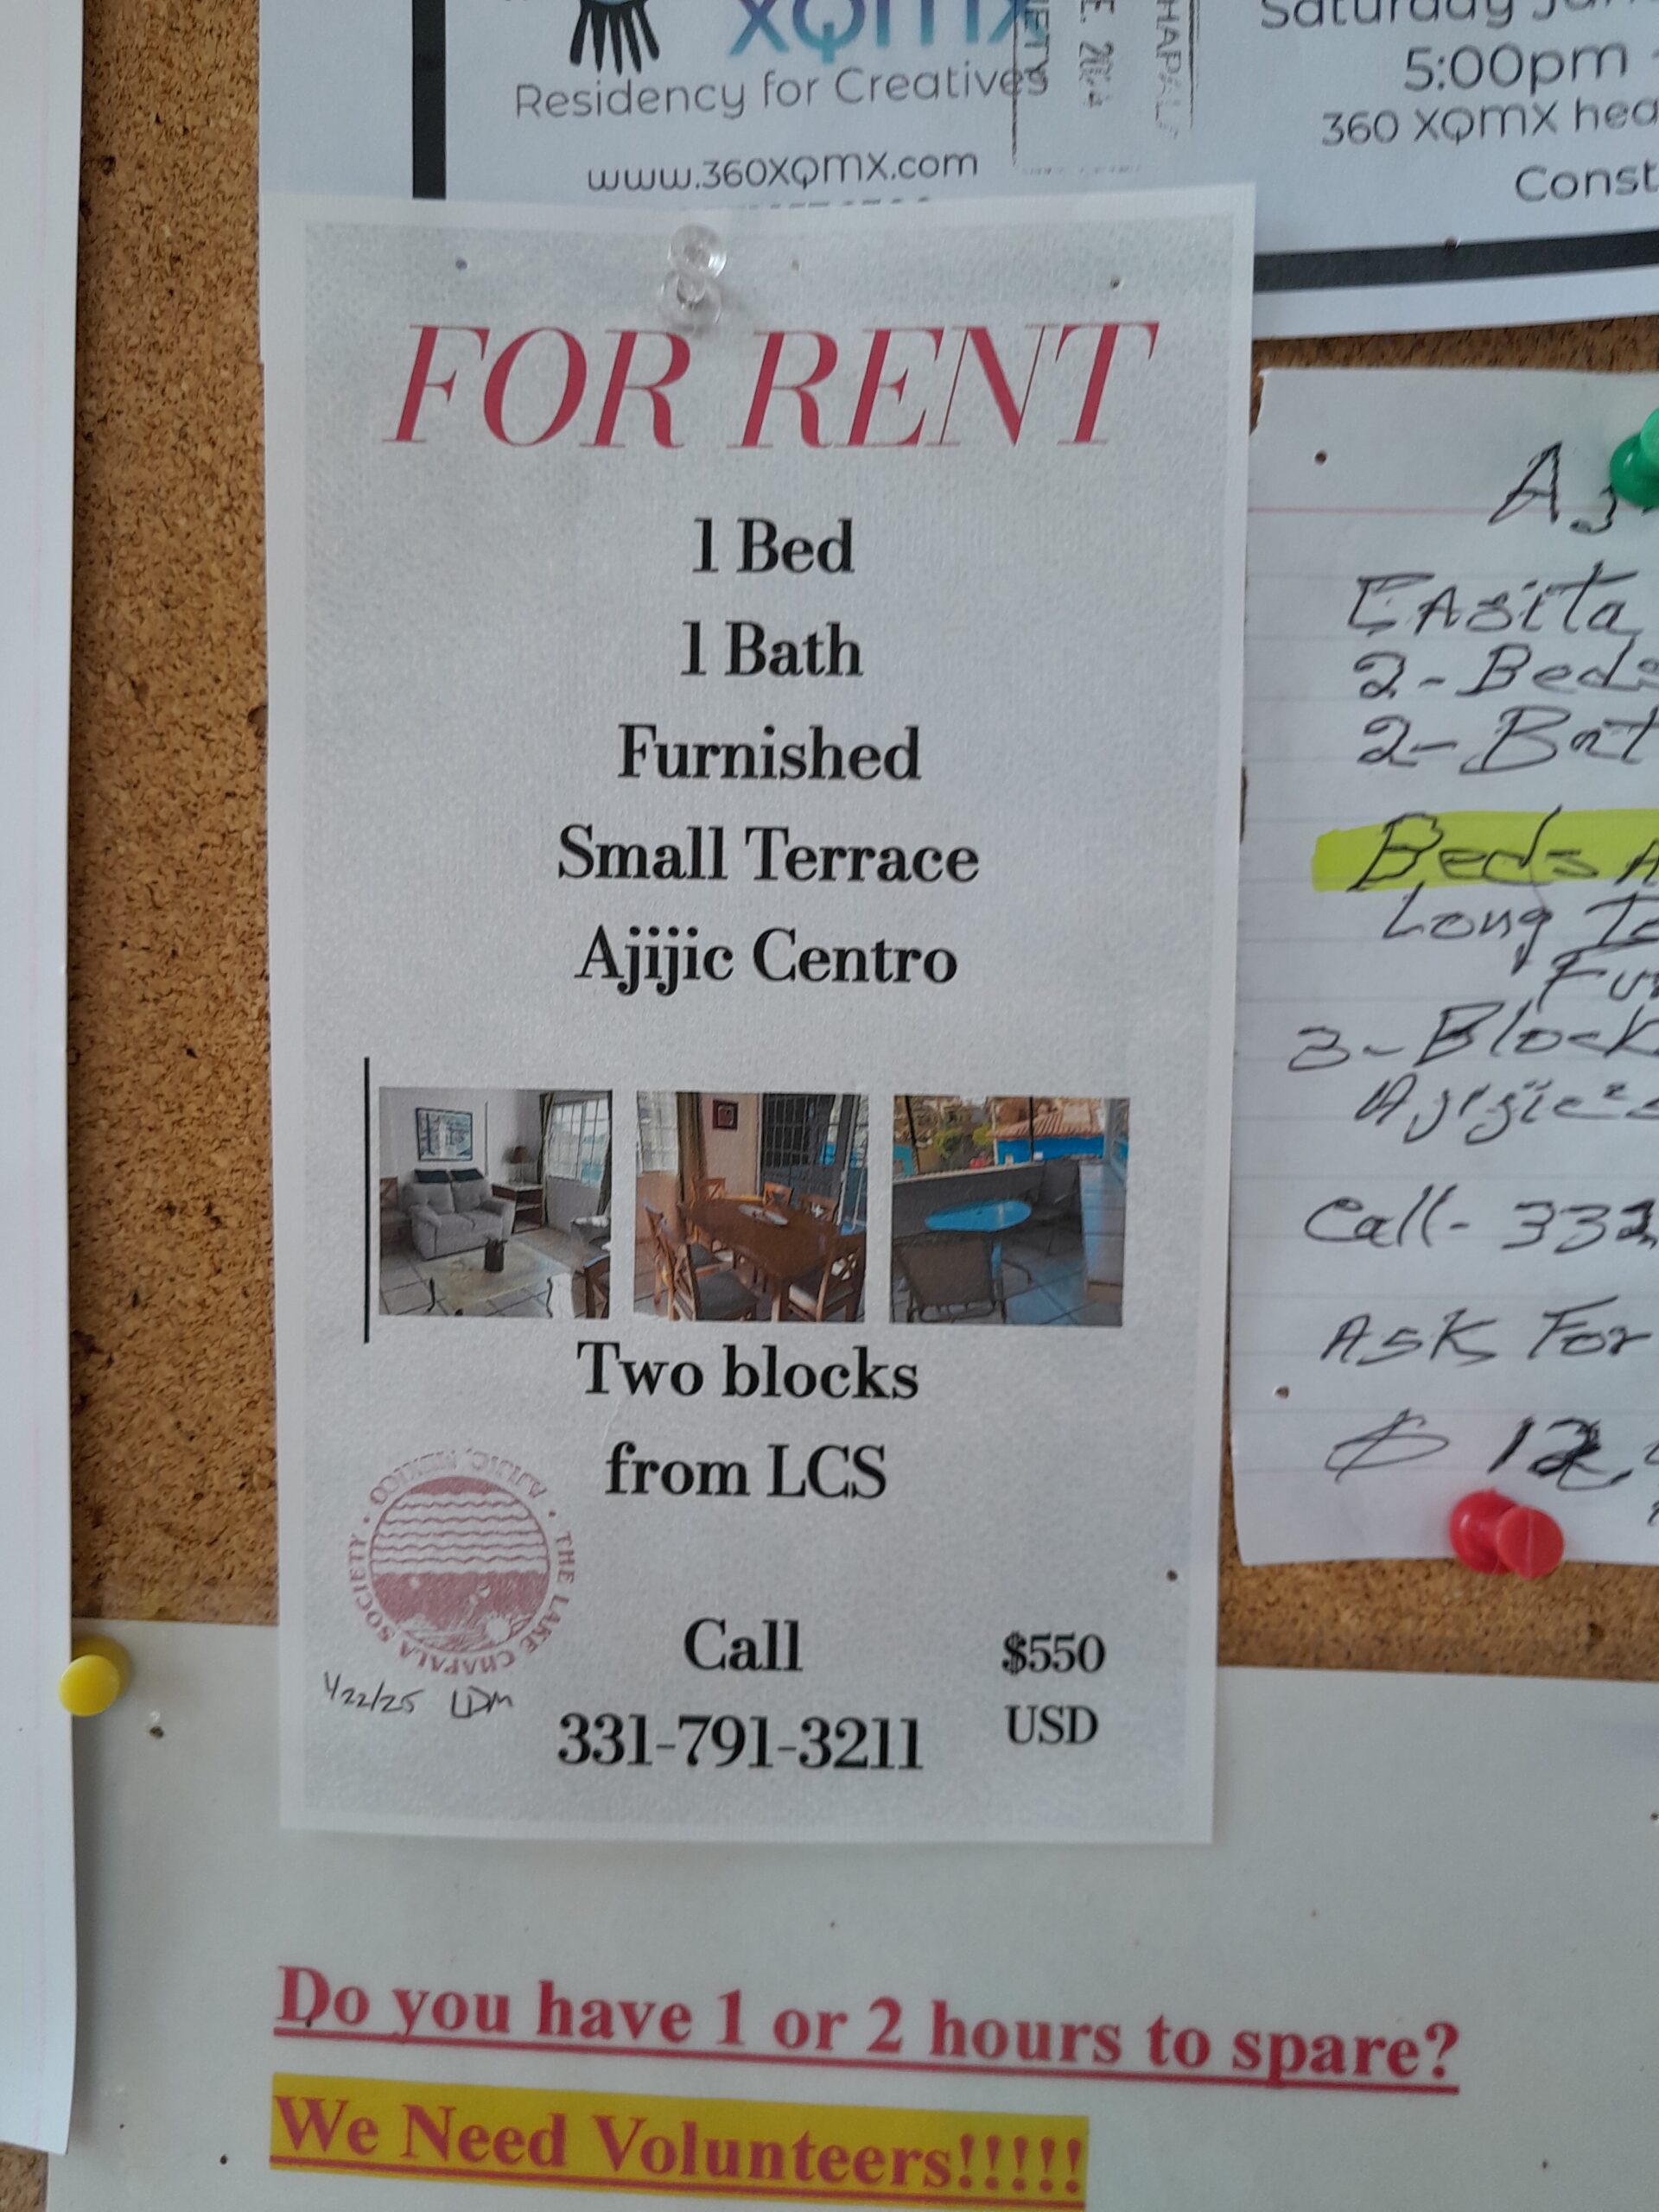 XQMX
Residency for Creatives
www.360XQMX.com
5:00pm
360 XQMX
FOR RENT
1 Bed
1 Bath
Furnished
Small Terrace
Ajijic Centro
Two blocks
from LCS
THE LAKE CHAPALA SOCIETY · AJIJIC, MEXICO ·
1/22/25 LDM
Call
331-791-3211
$550
USD
Casita
2-Beds
2-
Beds
Long
3-Block
Call- 332
Ask For
$ 12,
Do you have 1 or 2 hours to spare?
We Need Volunteers!!!!!